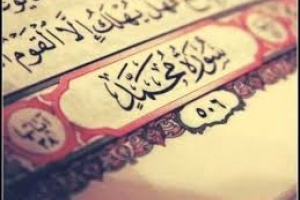 فَهَلْ يُهْلَكُ إِلَّا ٱلْقَوْمُ
سُورَةُ مُحَمَّد
٥٠٦